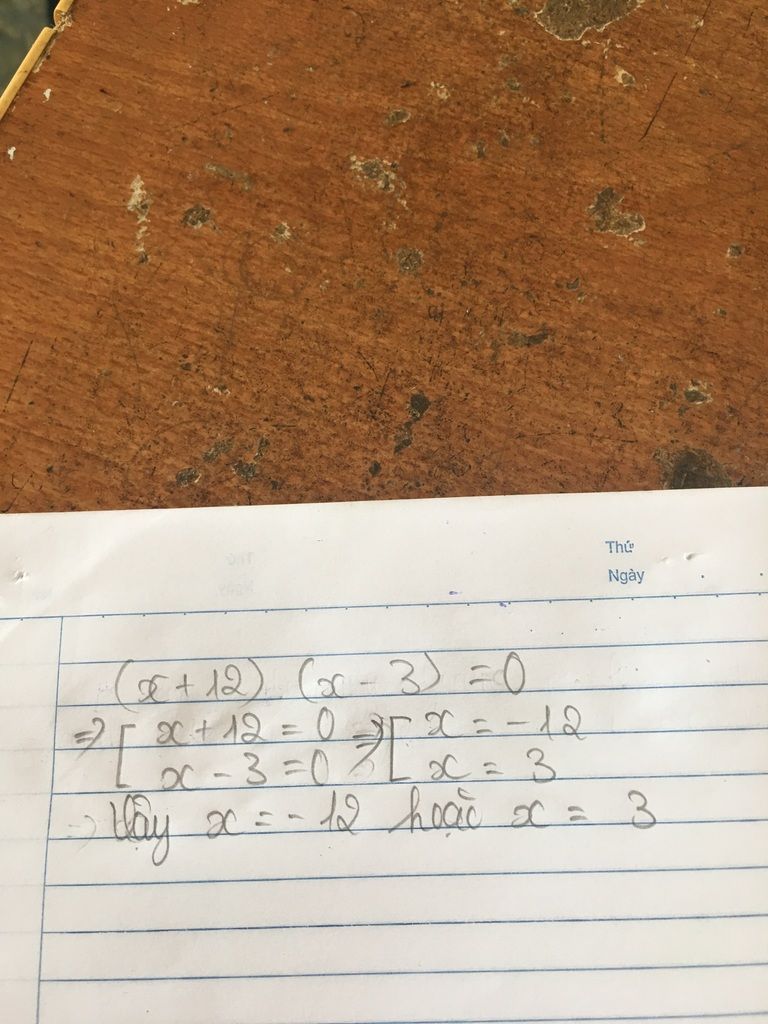 Thứ
Ngày
(x + 12) . (x - 3) = 0
=> [ x + 12 = 0 => [ x = - 12
x - 3 = 0 x = 3
=> Vậy x = - 12 hoặc x = 3